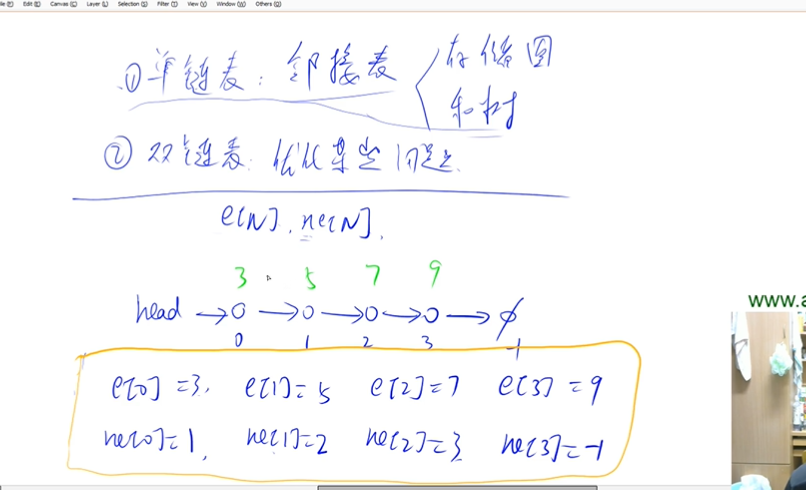 Edit (E) Canvas (C) Layer (L) Selection (S) Filter (T) View (V) Window (W) Others (O)
① 单链表: 邻接表 { 存储图
和树
② 双链表: 优化某些问题.
e[N], ne[N].
3 5 7 9
head → o → o → o → o → ∅
0 1 2 3 -1
e[0] = 3. e[1] = 5 e[2] = 7 e[3] = 9
ne[0] = 1, ne[1] = 2 ne[2] = 3 ne[3] = -1
www.a